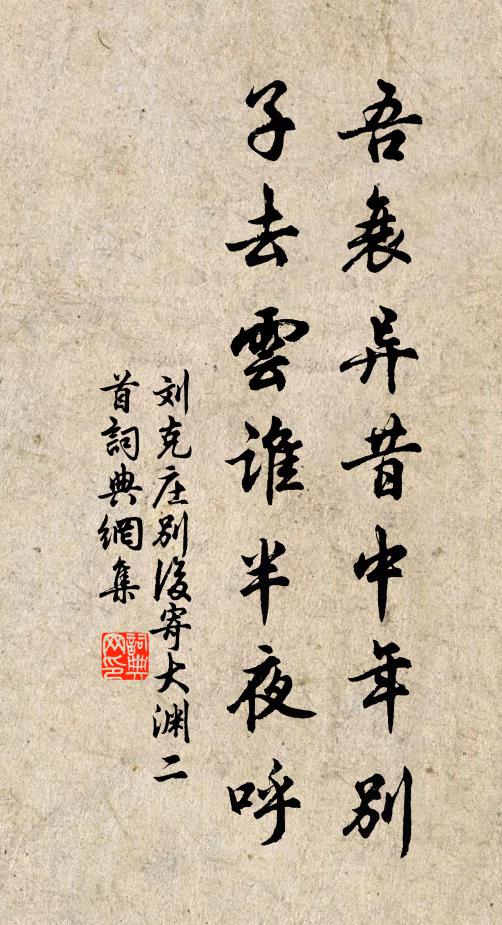 吾衰异昔中年别
子去雲谁半夜呼
刘克庄别後寄大渊二
首詞典網集
詞典
网印